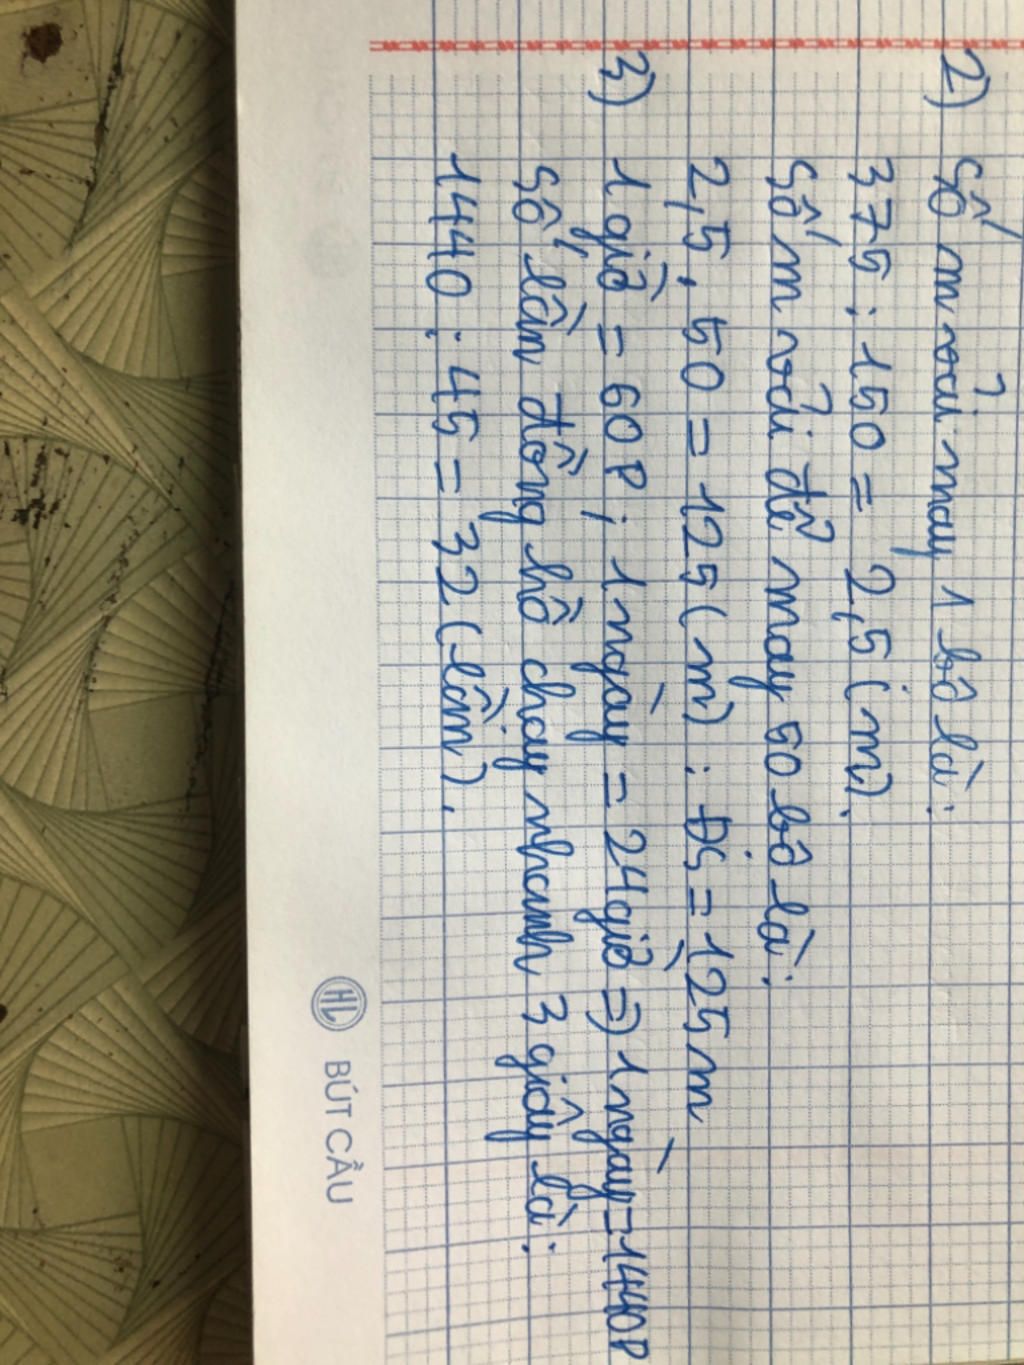 2) Số m vải may 1 bộ là:
375 : 150 = 2,5 (m).
Số m vải để may 50 bộ là:
2,5 . 50 = 125 (m) . ĐS = 125 m
3) 1 giờ = 60P ; 1 ngày = 24 giờ => 1 ngày = 1440P
Số lần đồng hồ chạy nhanh 3 giây là:
1440 : 45 = 32 (lần).
HL BÚT CẦU